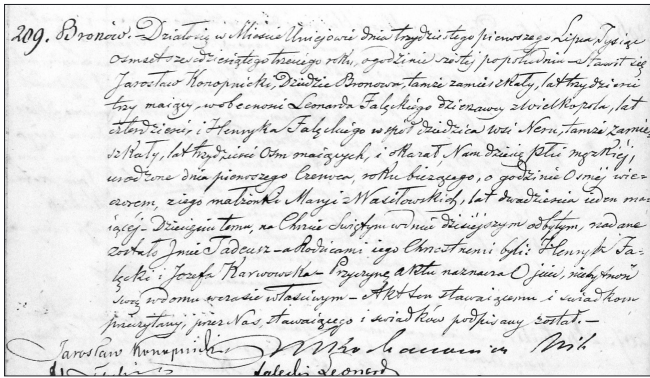 209. Bronów. Działo się w Mieście Uniejowie dnia trzydziestego pierwszego Lipca Tysiąc
ośmset sześćdziesiątego trzeciego roku, o godzinie szóstej popołudniu. Stawił się
Jarosław Konopnicki, Dziedzic Bronowa, tamże zamieszkały, lat trzydzieści
trzy maiący, w obecności Leonarda Załęckiego dzierżawcy z Wielkopola, lat
czterdzieści, i Henryka Załęckiego współ dziedzica wsi Neru, tamże zamie-
szkały, lat trzydzieści Ośm maiących, i okazał Nam dziecię płci męzkiéj,
urodzone dnia pierwszego Czerwca, roku bieżącego, o godzinie Osméj wie-
czorem, z jego małżonki Maryi z Wasiłowskich, lat dwadzieścia ieden ma-
iącéj. Dziecięciu temu, na Chrzcie Świętym w dniu dzisiejszym odbytym, nadane
zostało Imie Tadeusz a Rodzicami iego Chrzestnemi byli: Henryk Za-
łęcki i Józefa Karwowska. Przyczynę aktu naznacza Ojciec,
w domu w czasie właściwym. Akt ten stawaiącemu i świadkom
przeczytany, przez Nas, stawaiącego i świadków podpisany został.
Jarosław Konopnicki
Załęcki Leonard